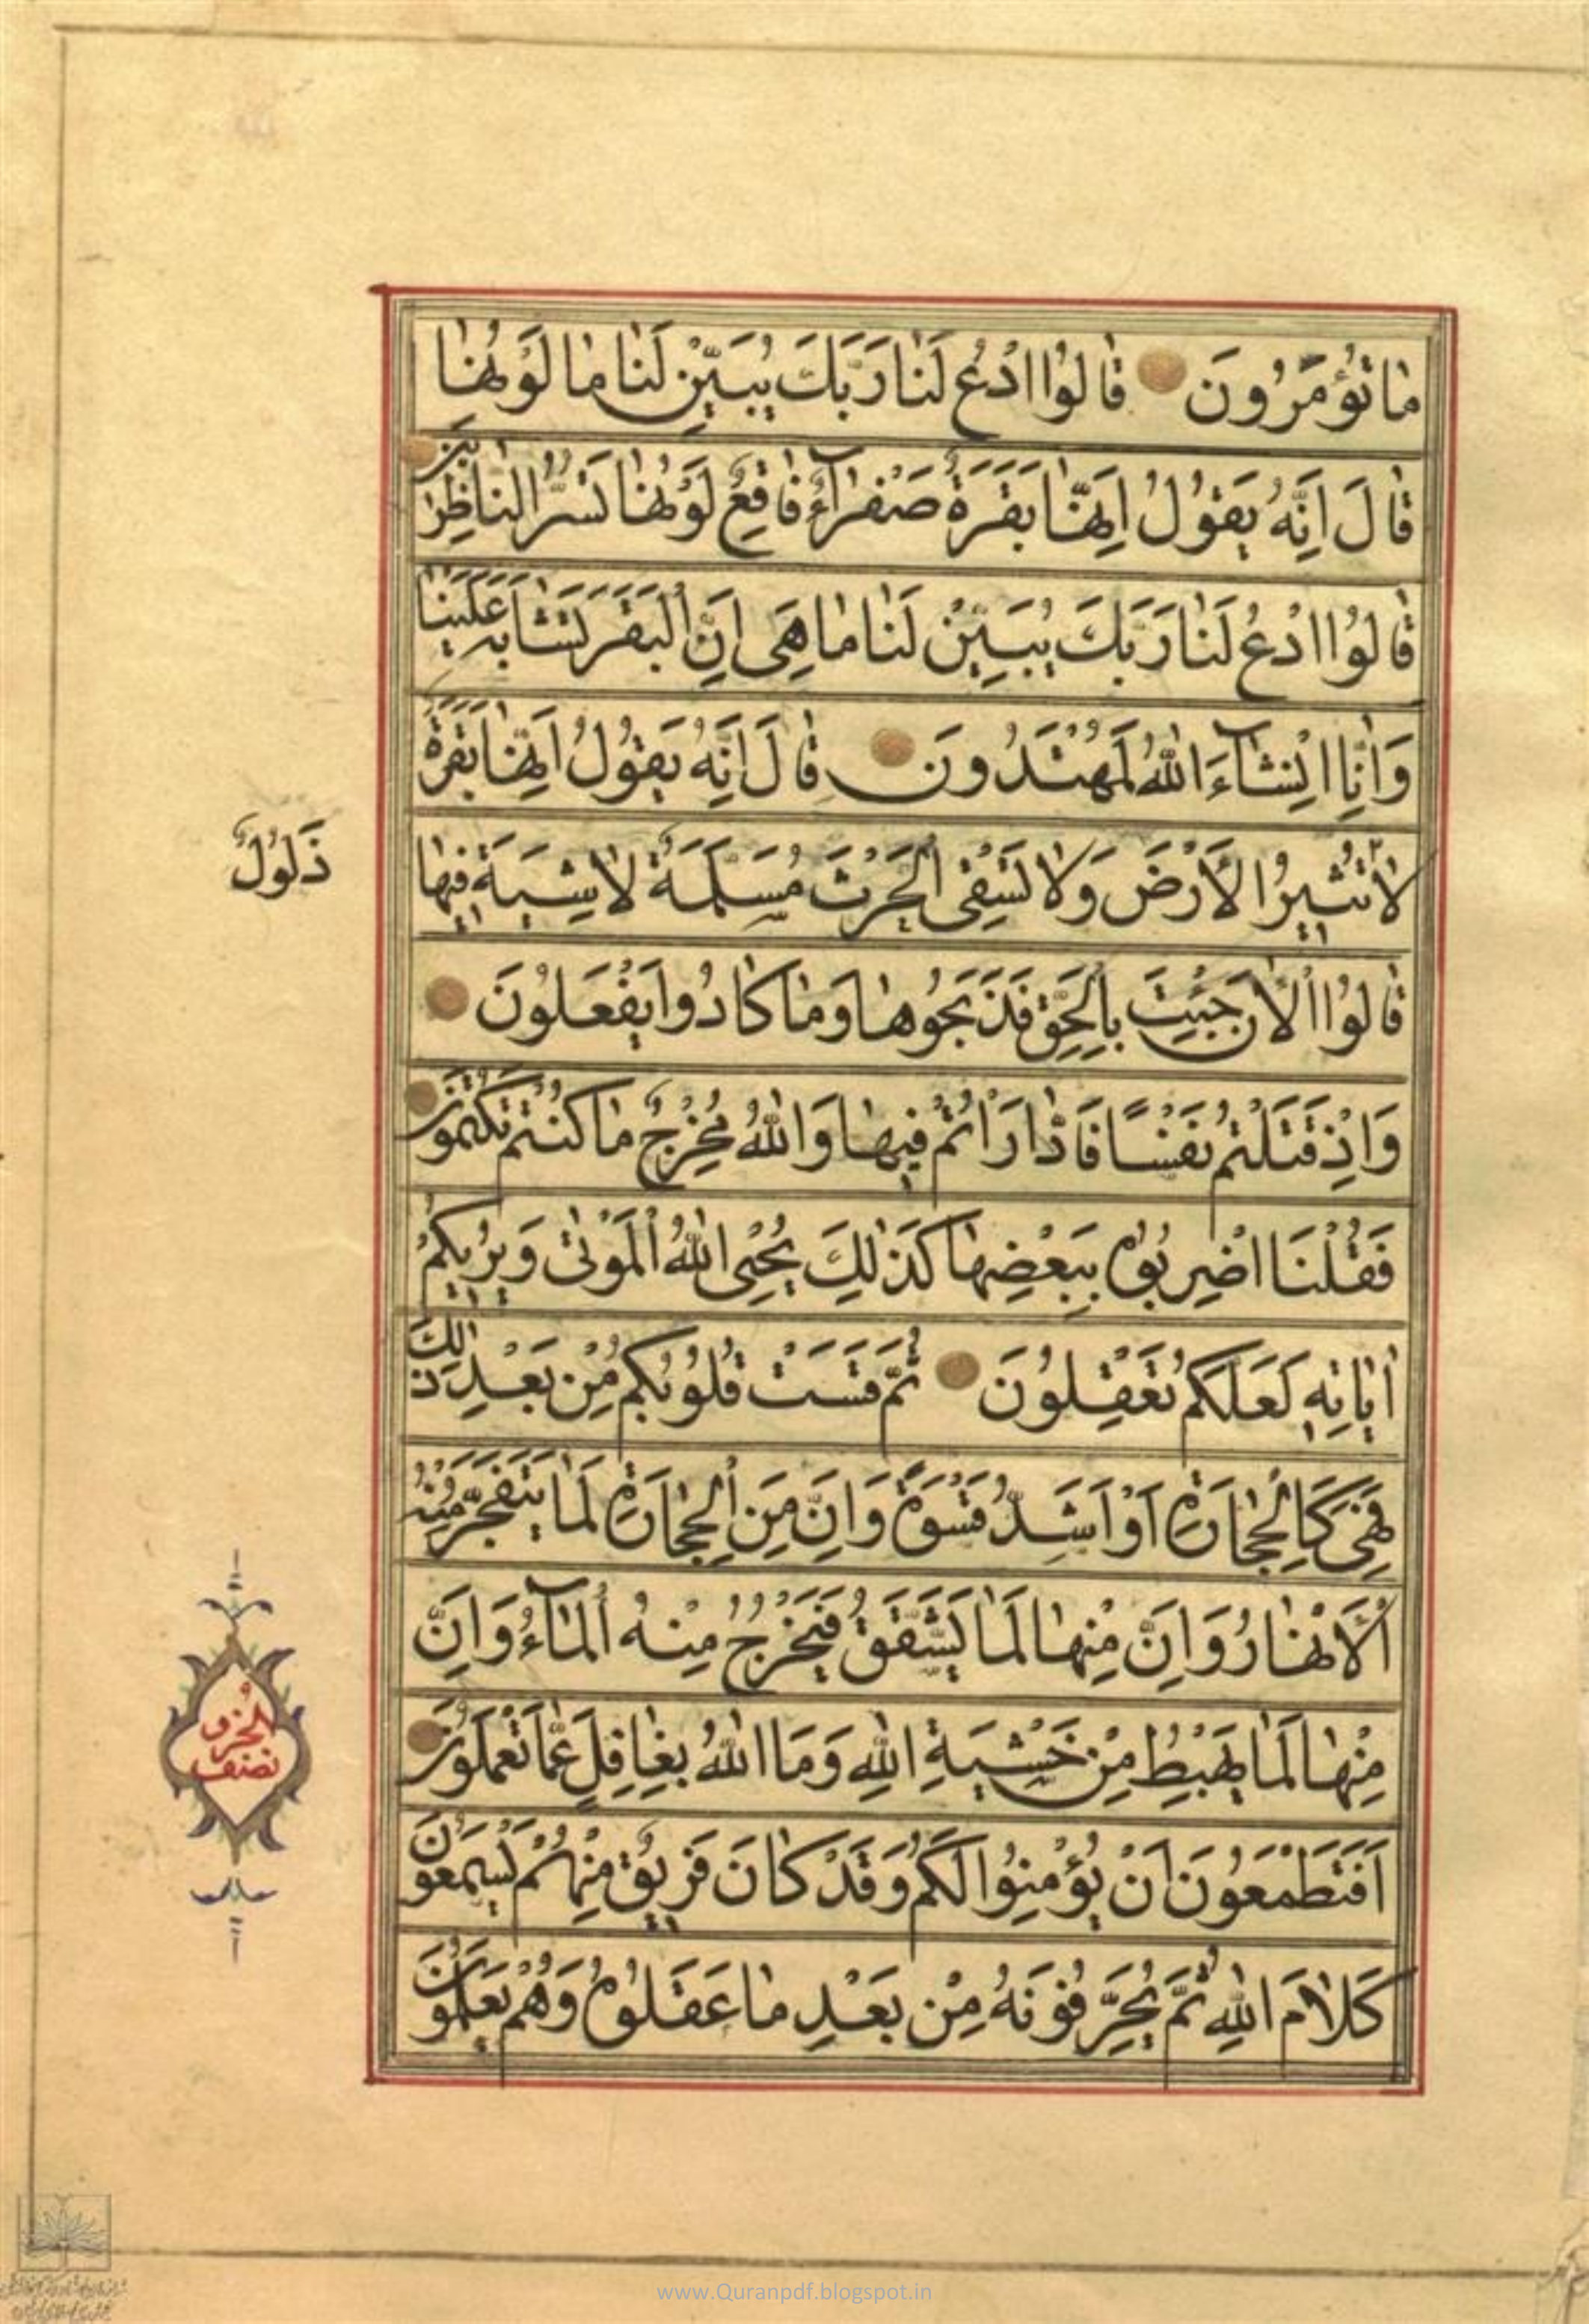 مٰا تُؤْمَرُونَ قٰالُوا ادْعُ لَنٰا رَبَّكَ يُبَيِّنْ لَنٰا مٰا لَوْنُهٰا
قٰالَ اِنَّهُ يَقُولُ اِنَّهٰا بَقَرَةٌ صَفْرٰآءُ فٰاقِعٌ لَوْنُهٰا تَسُرُّ النّٰاظِرٖينَ
قٰالُوا ادْعُ لَنٰا رَبَّكَ يُبَيِّنْ لَنٰا مٰا هِىَ اِنَّ الْبَقَرَ تَشٰابَهَ عَلَيْنٰا
وَاِنّٰا اِنْشٰآءَ اللّٰهُ لَمُهْتَدُونَ قٰالَ اِنَّهُ يَقُولُ اِنَّهٰا بَقَرَةٌ
لٰا تُثٖيرُ الْاَرْضَ وَلٰا تَسْقِى الْحَرْثَ مُسَلَّمَةٌ لٰا شِيَةَ فٖيهٰا
ذَلُولٌ
قٰالُوا الْاٰنَ جِئْتَ بِالْحَقِّ فَذَبَحُوهٰا وَمٰا كٰادُوا يَفْعَلُونَ
وَاِذْ قَتَلْتُمْ نَفْسًا فَادّٰارَأْتُمْ فٖيهٰا وَاللّٰهُ مُخْرِجٌ مٰا كُنْتُمْ تَكْتُمُونَ
فَقُلْنَا اضْرِبُوهُ بِبَعْضِهٰا كَذٰلِكَ يُحْيِى اللّٰهُ الْمَوْتٰى وَيُرٖيكُمْ
اٰيٰاتِهٖ لَعَلَّكُمْ تَعْقِلُونَ ثُمَّ قَسَتْ قُلُوبُكُمْ مِنْ بَعْدِ ذٰلِكَ
فَهِىَ كَالْحِجٰارَةِ اَوْ اَشَدُّ قَسْوَةً وَاِنَّ مِنَ الْحِجٰارَةِ لَمٰا يَتَفَجَّرُ مِنْهُ
الْاَنْهٰارُ وَاِنَّ مِنْهٰا لَمٰا يَشَّقَّقُ فَيَخْرُجُ مِنْهُ الْمٰآءُ وَاِنَّ
مِنْهٰا لَمٰا يَهْبِطُ مِنْ خَشْيَةِ اللّٰهِ وَمَا اللّٰهُ بِغٰافِلٍ عَمّٰا تَعْمَلُونَ
الحزب
نصف
اَفَتَطْمَعُونَ اَنْ يُؤْمِنُوا لَكُمْ وَقَدْ كٰانَ فَرٖيقٌ مِنْهُمْ يَسْمَعُونَ
كَلٰامَ اللّٰهِ ثُمَّ يُحَرِّفُونَهُ مِنْ بَعْدِ مٰا عَقَلُوهُ وَهُمْ يَعْلَمُونَ
www.Quranpdf.blogspot.in